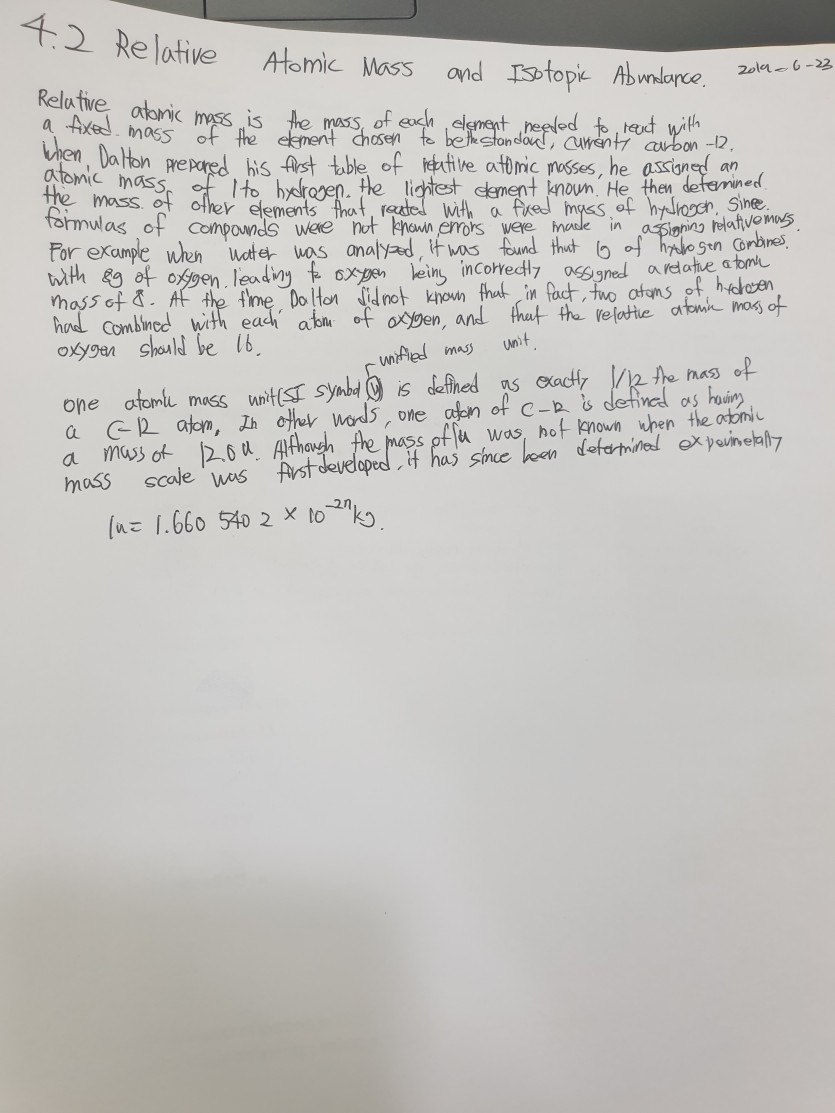 4.2 Relative Atomic Mass and Isotopic Abundance. 2019-6-23
Relative atomic mass is the mass of each element needed to react with
a fixed mass of the element chosen to be the standard, currenty carbon -12.
When Dalton prepared his first table of relative atomic masses, he assigned an
atomic mass of 1 to hydrogen. the lightest element known. He then determined
the mass of other elements that reacted with a fixed mass of hydrogen. Since
formulas of compounds were not known, errors were made in assigning relative mass.
For example when water was analyzed, it was found that 1g of hydrogen combines.
with 8g of oxygen, leading to oxygen being incorrectly assigned a relative atomic
mass of 8. At the time, Dalton did not known that in fact, two atoms of hydrogen
had combined with each atom of oxygen, and that the relative atomic mass of
oxygen should be 16.
unified mass unit.
one atomic mass unit (SI symbol u) is defined as exactly 1/12 the mass of
a C-12 atom, In other words, one atom of C-12 is defined as having
a mass of 12.0 u. Although the mass of 1u was not known when the atomic
mass scale was first developed, it has since been determined experimetally
1u = 1.660 540 2 × 10⁻²⁷ kg.